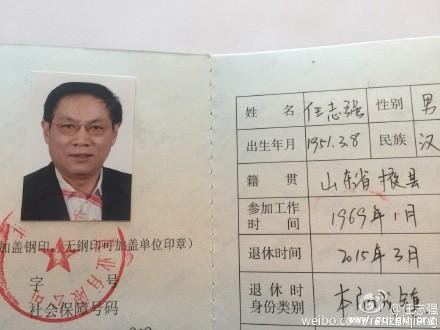 姓 名 任志强 性别 男
出生年月 1951.3.8 民族 汉
籍 贯 山东省掖县
参加工作
时 间 1969年1月
退休时间 2015年3月
退 休 时
身份类别 本
加盖钢印，无钢印可加盖单位印章）
字 号
社会保障号码
业有限公司
@任志强
weibo.com/renzhiqiang